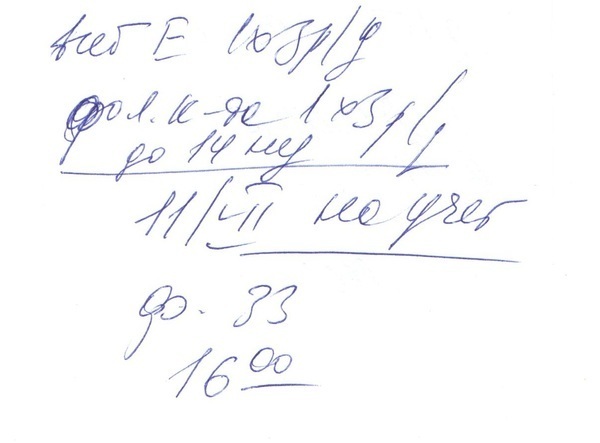 вит E 1х3р/д
фол. к-та 1х3р/д
до 14 нед
11/VII на учет
до. 33
16 00